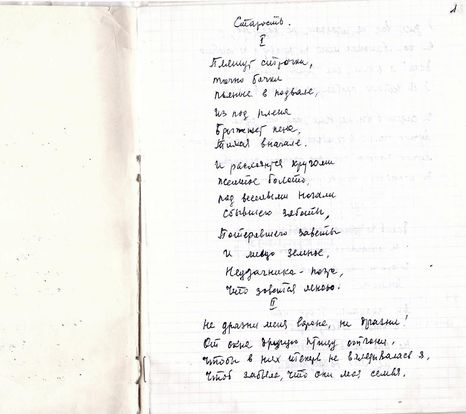 1
Старость.
I
Пляшут строчки,
точно бочки
пьяные в подвале,
Из под
Брызжет пена,
Тихая вначале.
И расползутся кругами
желтое болото,
под веселыми ногами
Сбывшего заботы,
Потерявшего заветы
И лицо земное,
Неудачника - поэта,
Что зовётся мною.
II
Не дразни меня ворона, не дразни!
От окна другую птицу отгони,
Чтобы в них теперь не вглядывалась я,
Чтоб забыла, что они моя семья.